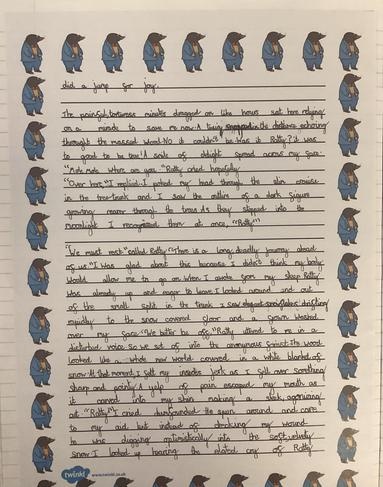 did a jump for joy.
The painful, torturous minutes dragged on like hours sat here relying
on a miracle to save me now. A twig snapped in the distance echoing
through the massed wood. No it couldn't be. Was it Ratty? it was
to good to be true. A smile of delight spread across my face.
"Mole mole where are you" Ratty cried hopefully
"Over here," I replied. I poked my head through the slim
in the tree-trunk and I saw the outline of a dark figure
growing nearer through the trees. As they stepped into the
moonlight I recognised them at once, "Ratty"
"We must rest" called Ratty "There is a long deadly journey ahead
of us." I was glad about this because I didn't think my body
would allow me to go on. When I awoke from my sleep Ratty
was already up and eager to leave. I looked around and out
of the small split in the trunk I saw elegant snowflakes drifting
rapidly to the snow covered floor and a frown washed
over my face. "We better be off," Ratty uttered to me in a
disturbed voice. So we set of into the anonymous forest. The wood
looked like a whole new world covered in a white blanket of
snow. At that moment, I felt my insides jerk as I fell over something
sharp and pointy. A yelp of pain escaped my mouth as
it carved into my skin making a agonising
cut. "Ratty" I cried, dumbfounded He spun around and came
to my aid but instead of my wound
he was digging optimistically into the soft, velvety
snow. I looked up hearing the elated cry of Ratty
twinkl www.twinkl.co.uk